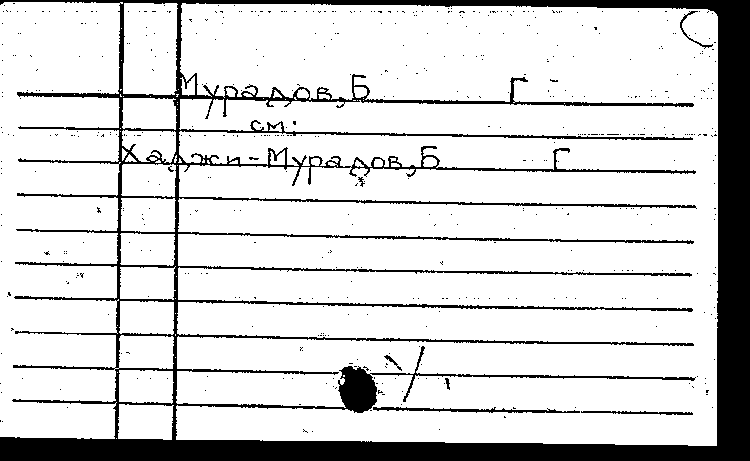 Мурадов, Б Г
см:
Хаджи-Мурадов, Б Г